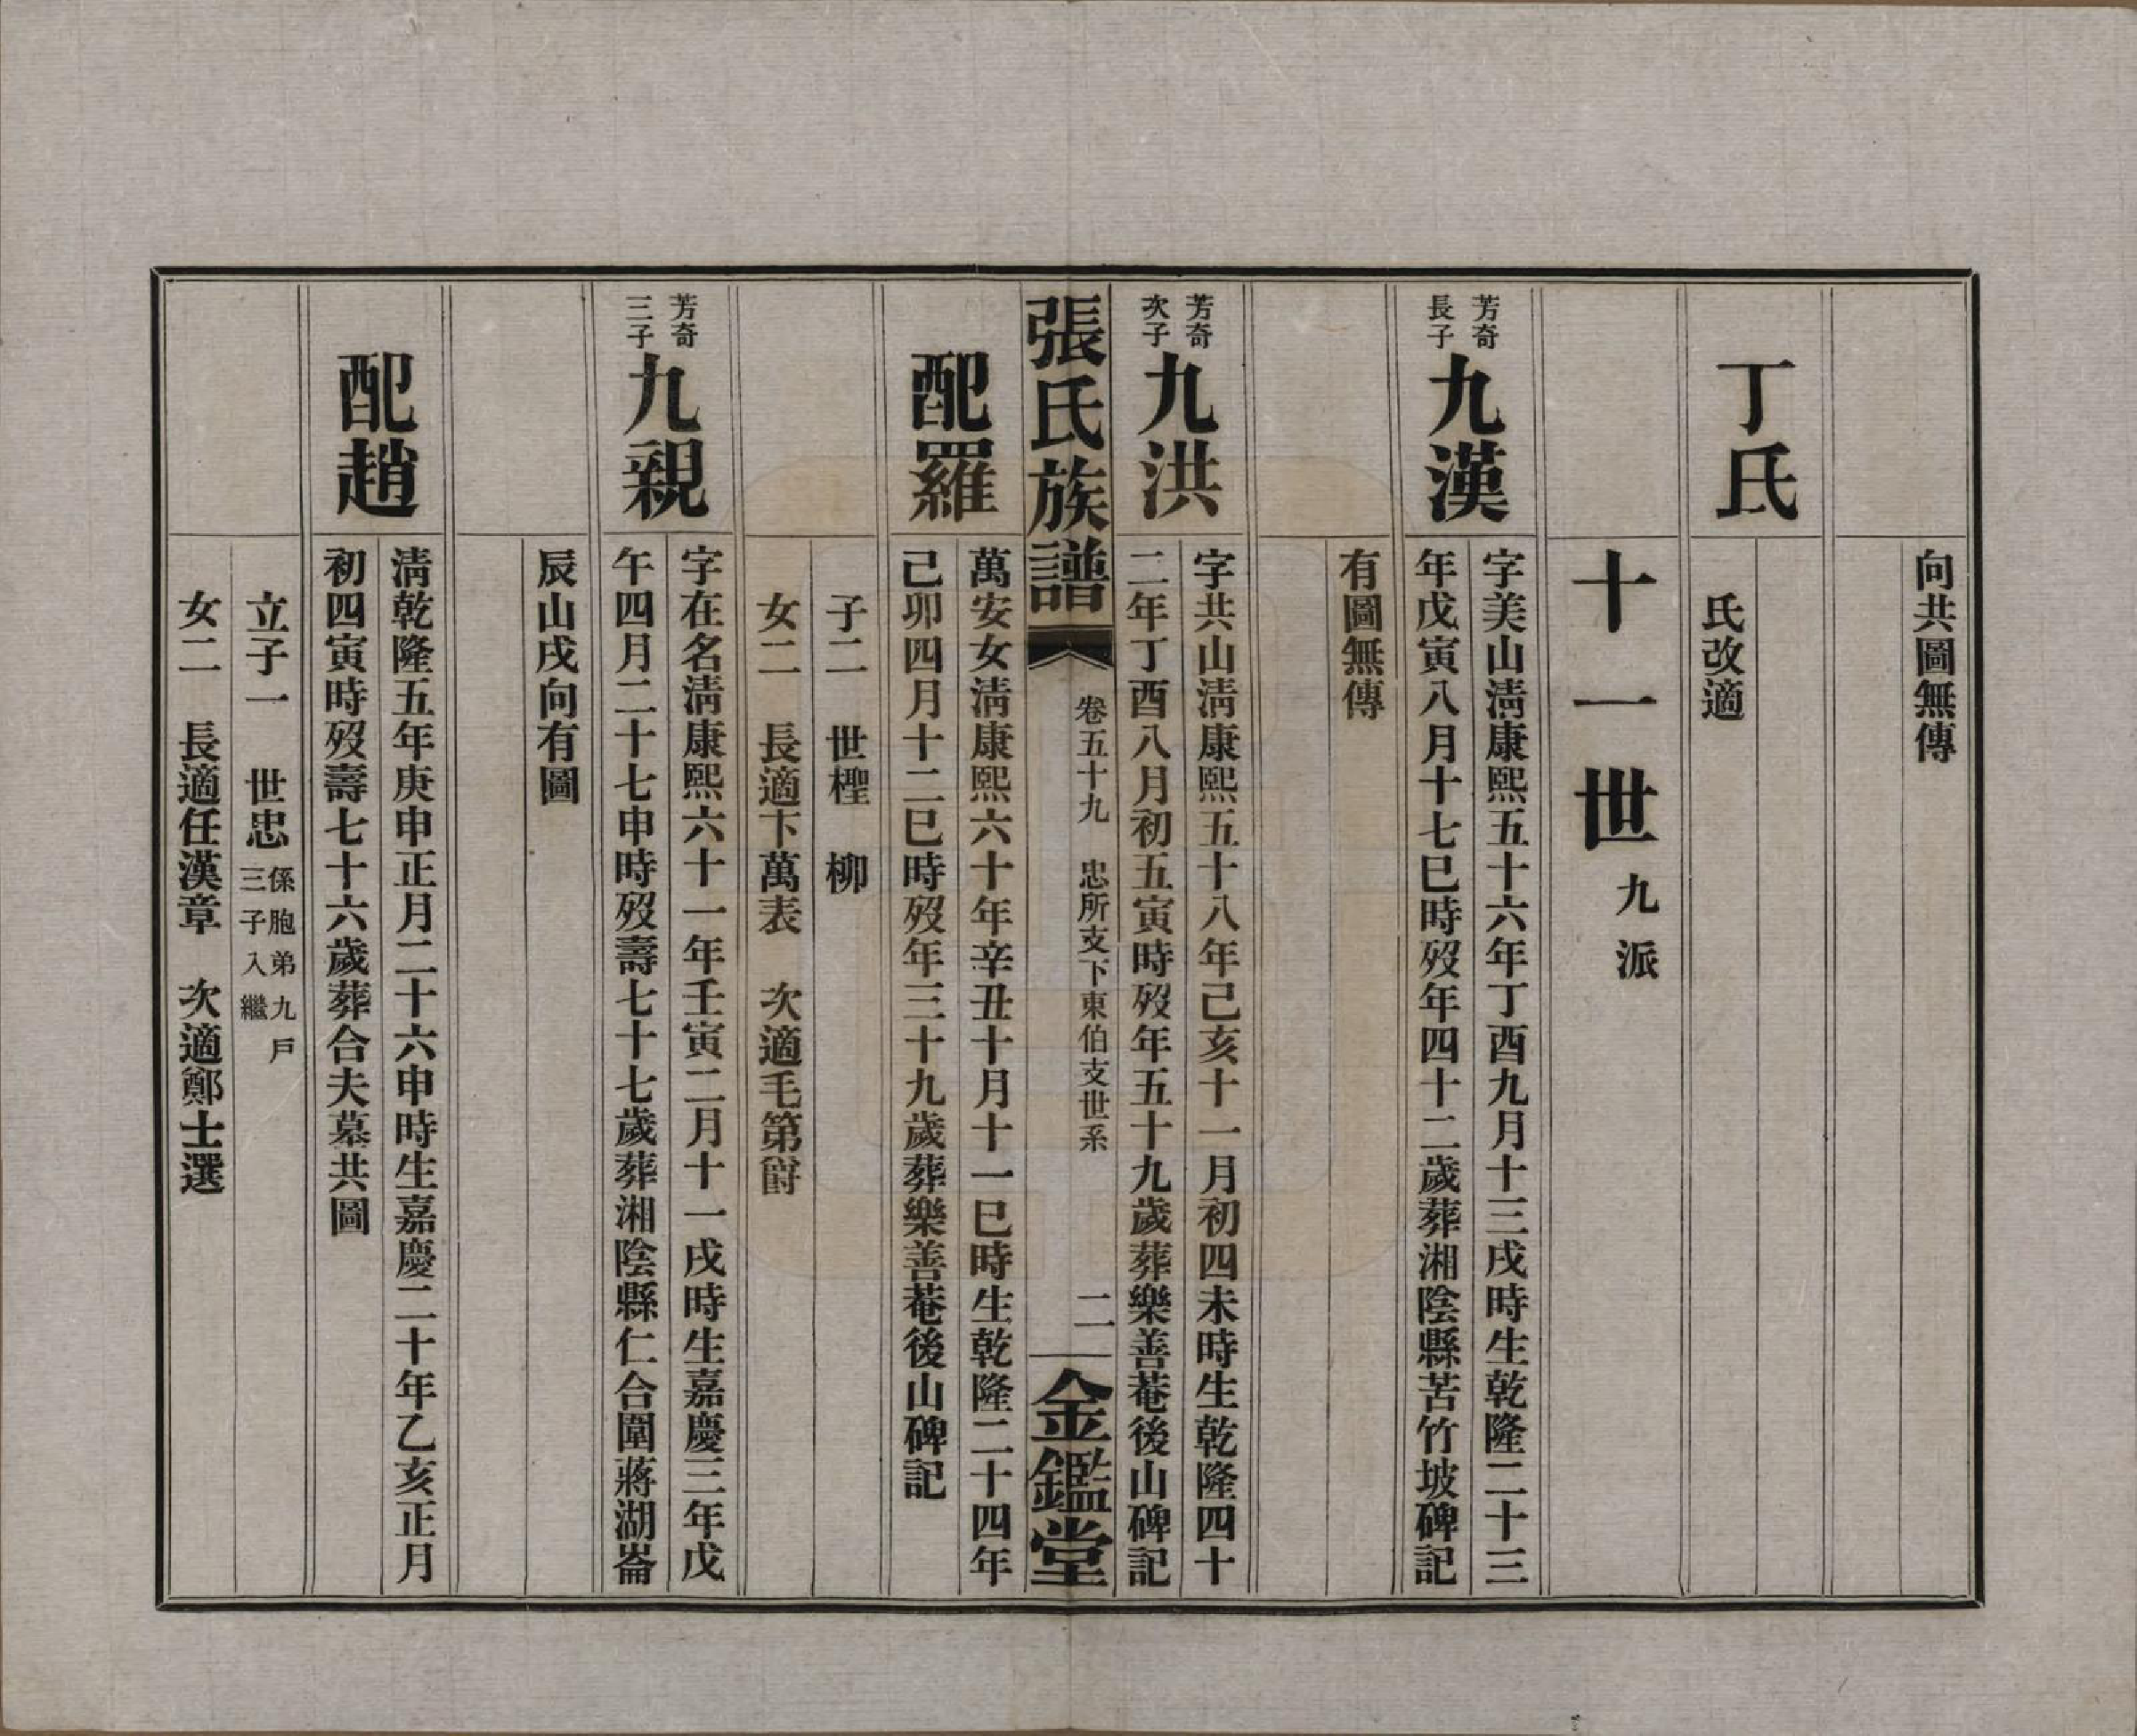 向共圖無傳
丁氏
氏改適
十一世 九派
芳奇
長子
九漢
字美山淸康熙五十六年丁酉九月十三戌時生乾隆二十三
年戊寅八月十七巳時歿年四十二歲葬湘陰縣苦竹坡碑記
有圖無傳
芳奇
次子
九洪
字共山淸康熙五十八年己亥十一月初四未時生乾隆四十
二年丁酉八月初五寅時歿年五十九歲葬樂善菴後山碑記
張氏族譜
卷五十九 忠所支下東伯支世系
二
金鑑堂
配羅
萬安女淸康熙六十年辛丑十月十一巳時生乾隆二十四年
己卯四月十二巳時歿年三十九歲葬樂善菴後山碑記
子二 世檉 柳
女二 長適下萬表 次適毛第爵
芳奇
三子
九親
字在名淸康熙六十一年壬寅二月十一戌時生嘉慶三年戊
午四月二十七申時歿壽七十七歲葬湘陰縣仁合圍蔣湖崙
辰山戌向有圖
配趙
淸乾隆五年庚申正月二十六申時生嘉慶二十年乙亥正月
初四寅時歿壽七十六歲葬合夫墓共圖
立子一 世忠
係胞弟九戶
三子入繼
女二 長適任漢章 次適鄭士選